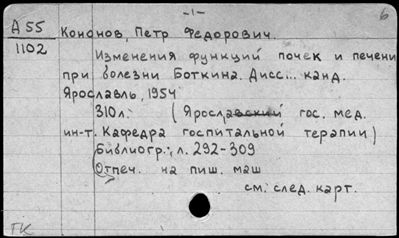 -1-
б
А 55 Кононов, Петр Федорович.
1102
Изменения функций почек и печени
при болезни Боткина. Дисс... канд.
Ярославль, 1954
310л. (Ярославский гос. мед.
ин-т. Кафедра госпитальной терапии)
Библиогр.: л. 292-309
Отпеч. на пиш. маш
см. след. карт.
ГК